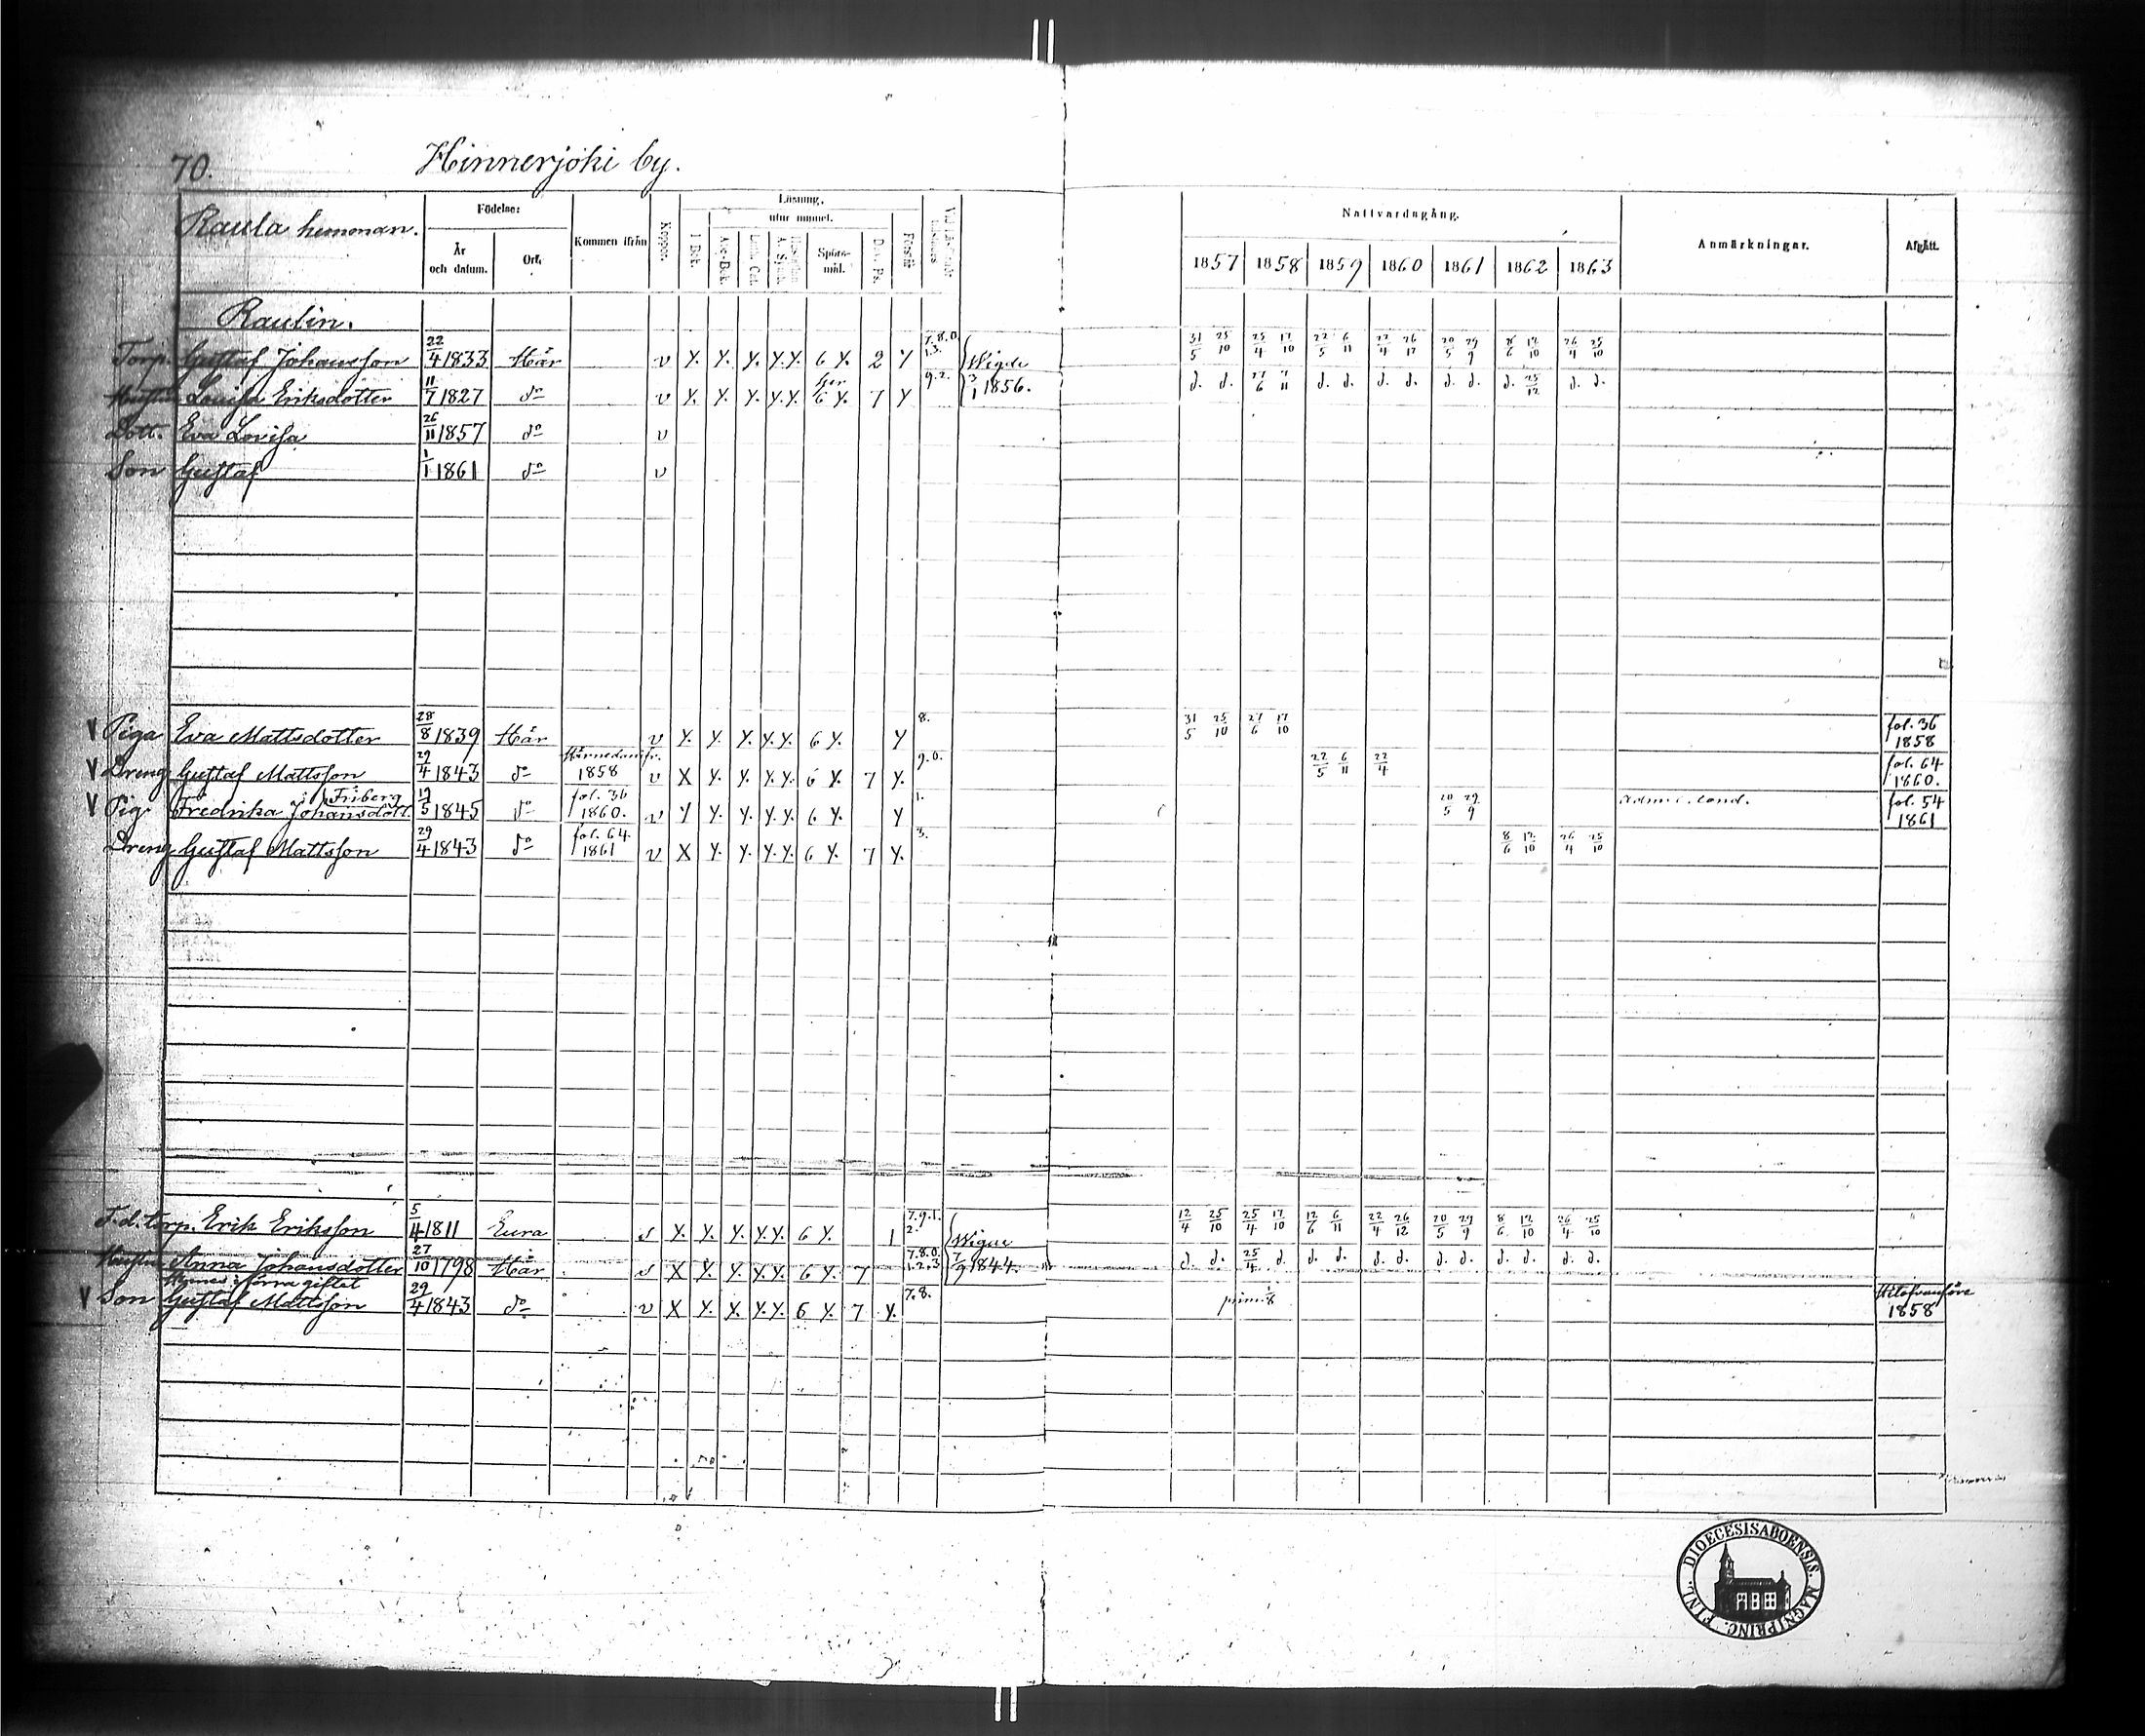 70. Hinnerjoki by.
Raula hemman.
Födelse: År och datum. Ort.
Kommen ifrån
Koppor.
Läsning, utur minnet. I Bok. Abc-Bok. Luth. Cat. Spörsmål. Dav. Ps. Förstår
Nattvardsgång.
1857 1858 1859 1860 1861 1862 1863
Anmärkningar.
Afgått.
Raulin.
Torp. Gustaf Johansson 22/4 1833 Här v Y. Y. Y. Y.Y. 6 Y. 2 Y 7.8.0. 1.3. Wigde 31/5 25/10 25/4 17/10 22/5 6/11 22/4 26/12 20/5 29/9 8/6 12/10 26/4 25/10
Hustru Lovisa Eriksdotter 11/7 1827 do v Y. Y. Y. Y.Y. 6 Y. 7 Y 9.2. 3/1 1856. d. d. 27/6 7/11 d. d. d. d. d. d. d. 25/12 d. d.
Dott. Eva Lovisa 26/11 1857 do v
Son Gustaf 1/1 1861 do v
V Piga Eva Mattsdotter 28/8 1839 Här v Y. Y. Y. Y.Y. 6 Y. Y 8. 31/5 25/10 27/6 17/10 fol. 36 1858
V Dreng Gustaf Mattsson 29/4 1843 do 1858 v X Y. Y. Y.Y. 6 Y. 7 Y. 9.0. 22/5 6/11 22/4 fol. 64 1860.
V Pig. Fredrika Johansdott. Friberg 19/5 1845 do fol. 36 1860. v Y Y. Y. Y.Y. 6 Y. Y 1. 20/5 29/9 fol. 54 1861
Dreng Gustaf Mattsson 29/4 1843 do fol. 64. 1861 v X Y. Y. Y.Y. 6 Y. 7 Y. 3. 8/6 12/10 26/4 25/10
F.d. torp. Erik Eriksson 5/4 1811 Eura s Y. Y. Y. Y.Y. 6 Y. 1 7.9.1. 2. Wigde 12/4 25/10 25/4 17/10 12/6 6/11 22/4 26/12 20/5 29/9 8/6 12/10 26/4 25/10
Hustru Anna Johansdotter 27/10 1798 Här s X Y. Y. Y.Y. 6 Y. 7 7.8.0. 1.2.3 7/9 1844. d. d. 25/4 d. d. d. d. d. d. d. d. d. d. d.
Hennes i förra giftet
V Son Gustaf Mattsson 29/4 1843 do v X Y. Y. Y.Y. 6 Y. 7 Y. 7.8. 1858
DIOECESIS ABOENSIS. MAGNI PRINC. FINL.